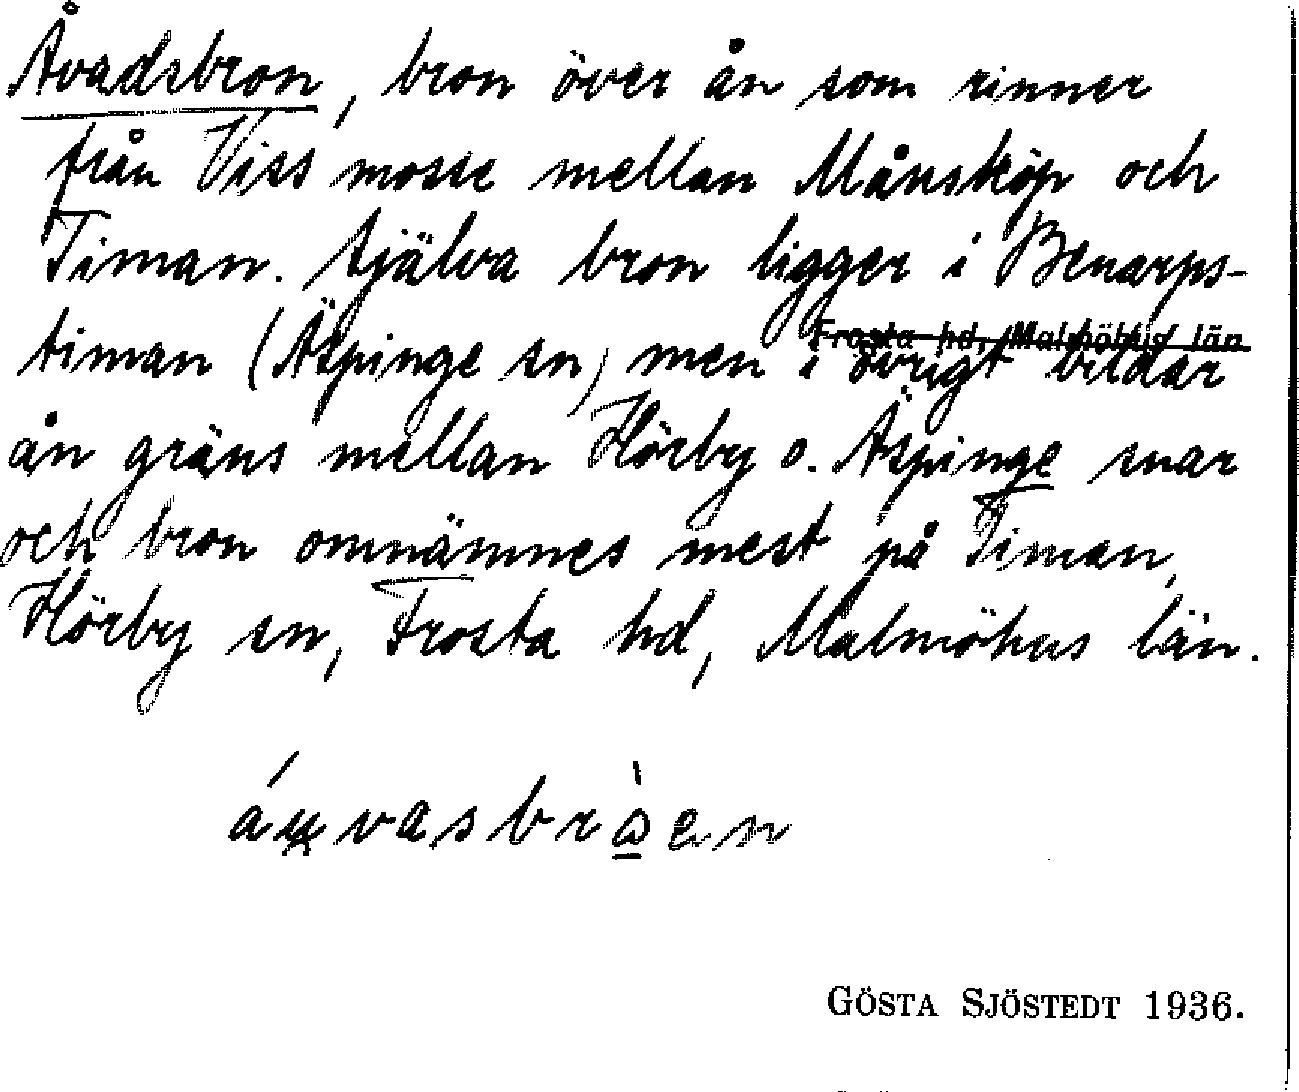 Åvadsbron, bron över ån som rinner
från Viss mosse mellan Månsköp och
Timan. Själva bron ligger i Benarps-
Frosta hd, Malmöhus län
timan (Äspinge sn) men i övrigt bildar
ån gräns mellan Hörby o. Äspinge snar
och bron omnämnes mest på Timan,
Hörby sn, Frosta hd, Malmöhus län.
GÖSTA SJÖSTEDT 1936.